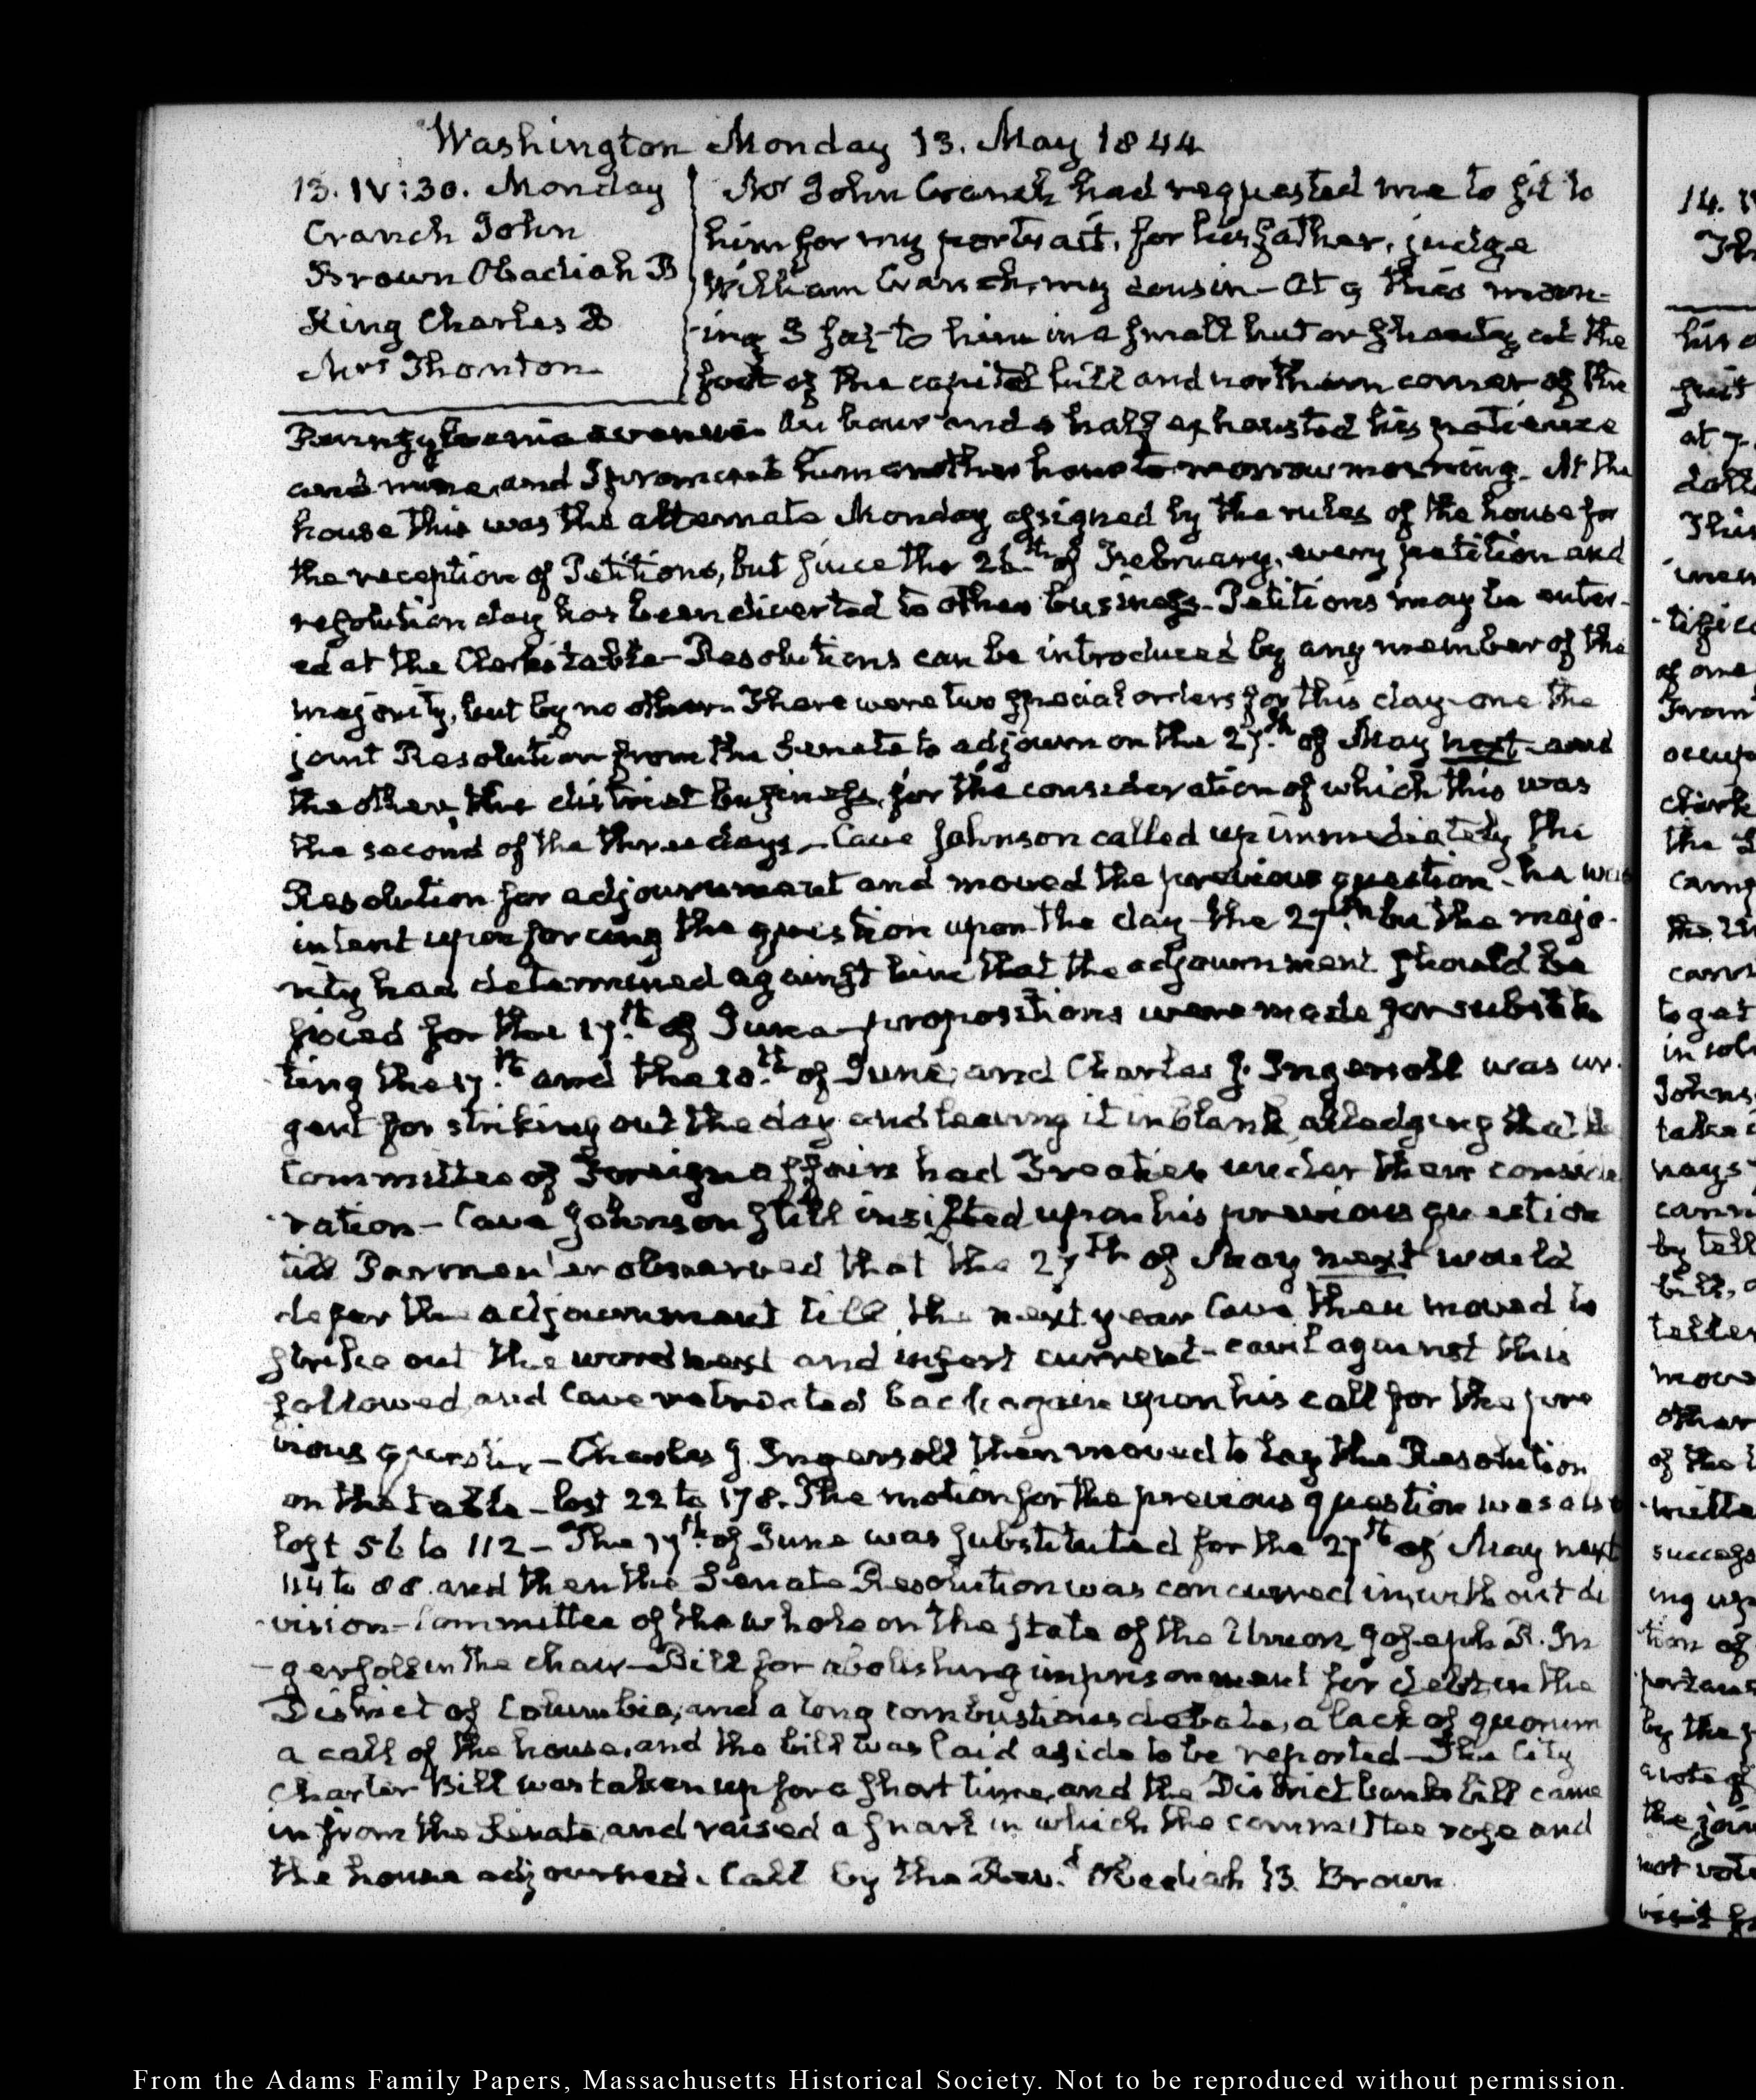 Washington Monday 13. May 1844
13. IV:30. Monday
Cranch John
Brown Obadiah B
King Charles B
Mrs Thornton
Mr John Cranch had requested me to sit to
him for my portrait, for his father, judge
William Cranch, my cousin— At 9 this morn-
ing I sat to him in a small hut or shanty at the
foot of the capitol hill and northern corner of the
Pennsylvania avenue. An hour and a half exhausted his patience
and mine, and I promised him another hour to-morrow morning. At the
house this was the alternate Monday assigned by the rules of the house for
the reception of Petitions, but since the 26th of February, every petition and
resolution day has been diverted to other business— Petitions may be enter-
ed at the Clerks table— Resolutions can be introduced by any member of the
majority, but by no other. There were two special orders for this day— one the
joint Resolution from the Senate to adjourn on the 27th of May next— and
the other, the district business, for the consideration of which this was
the second of the three days— Cave Johnson called up immediately the
Resolution for adjournment and moved the previous question— he was
intent upon forcing the question upon the day— the 27th but the majo-
rity had determined against him that the adjournment should be
fixed for the 17th of June— propositions were made for substitu
ting the 17th and the 10th of June, and Charles J. Ingersoll was ur-
gent for striking out the day and leaving it in blank, alledging that the
Committee of Foreign affairs had Treaties under their conside
ration— Cave Johnson still insisted upon his previous question
till Parmenter observed that the 27th of May next would
defer the adjournment till the next year Cave then moved to
strike out the word next and insert current— cavil against this
followed, and Cave retreated back again upon his call for the pre
vious question— Charles J. Ingersoll then moved to lay the Resolution
on the table— lost 22 to 178. The motion for the previous question was also
lost 56 to 112— The 17th of June was substituted for the 27th of May next
114 to 88. and then the Senate Resolution was concurred in, without di
vision— Committee of the whole on the state of the Union Joseph R. In
gersoll in the chair— Bill for abolishing imprisonment for debt in the
District of Columbia, and a long combustious debate, a lack of quorum
a call of the house, and the bill was laid aside to be reported— The City
Charter Bill was taken up for a short time, and the District banks bill came
in from the Senate, and raised a snarl in which the committee rose and
the house adjourned. Call by the Revd Obediah B. Brown.
From the Adams Family Papers, Massachusetts Historical Society. Not to be reproduced without permission.